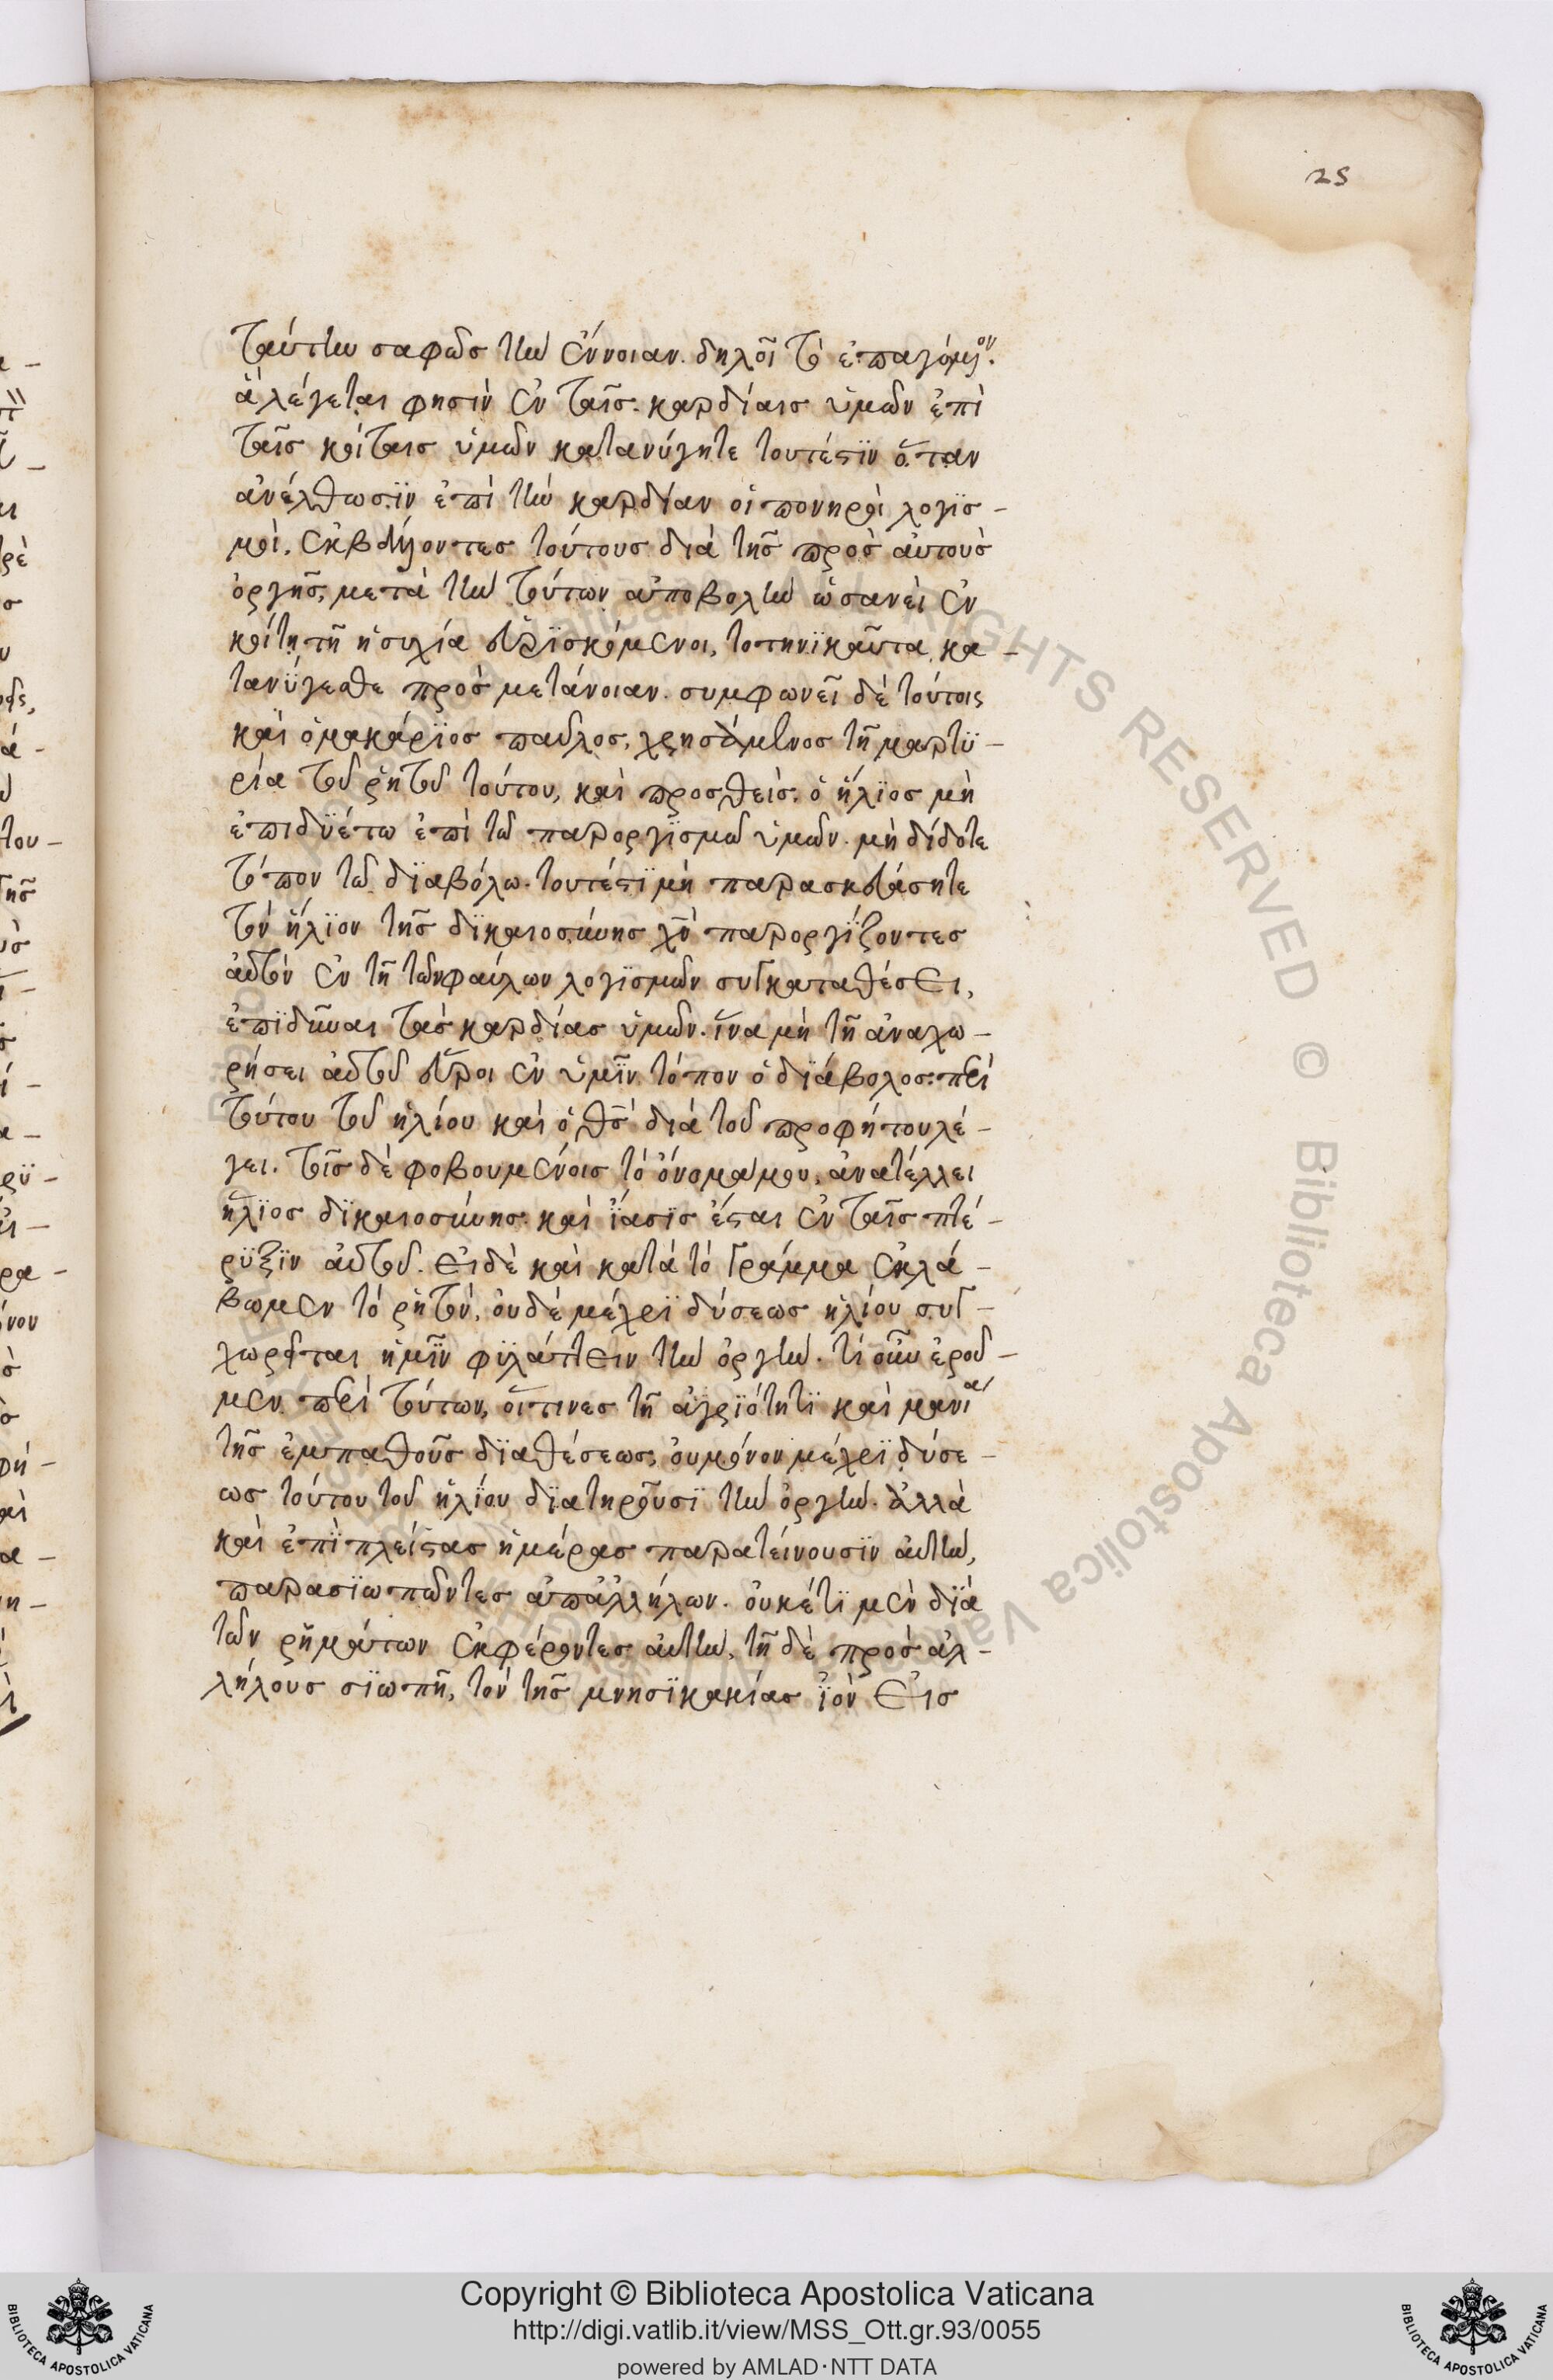 25
ταύτην σαφῶς τὴν ἔννοιαν. δηλοῖ τὸ ἐπαγόμενον.
ἃ λέγεται φησὶν ἐν ταῖς καρδίαις ὑμῶν ἐπὶ
ταῖς κοίταις ὑμῶν κατανύγητε τουτέστϊν ὅταν
ἀνέλθωσϊν ἐπὶ τὴν καρδίαν οἱ πονηροὶ λογϊσ-
μοὶ, ἐκβάλλοντες τούτους διὰ τῆς πρὸς αὐτοὺς
ὀργῆς, μετὰ τὴν τούτων ἀποβολὴν ὡσανεὶ ἐν
κοίτη τῆ ἡσυχία εὑρϊσκόμενοι, τοτηνϊκαῦτα κα-
τανϋγεσθε πρὸς μετάνοιαν. συμφωνεῖ δὲ τούτοις
καὶ ὁ μακάρϊος παυλος, χρησάμενος τῆ μαρτϋ-
ρία τοῦ ῥητοῦ τούτου, καὶ προσθεὶς. ὁ ἥλϊος μὴ
ἐπιδϋέτω ἐπὶ τῶ παροργϊσμῶ ὑμῶν. μὴ δίδοτε
τόπον τῶ δϊαβόλω. τουτέστϊ μὴ παρασκευάσητε
τὸν ἥλϊον τῆς δϊκαιοσύνης χν παροργίζοντες
αὐτὸν ἐν τῆ τῶν φαύλων λογϊσμῶν συγκαταθέσει,
ἐπϊδῦναι τὰς καρδίας ὑμῶν. ἵνα μὴ τῆ ἀναχω-
ρήσει αὐτοῦ εὕροι ἐν ὑμῖν τόπον ὁ δϊάβολος. περὶ
τούτου τοῦ ἡλίου καὶ ὁ θς διὰ τοῦ προφήτου λέ-
γει. τοῖς δὲ φοβουμένοις τὸ ὄνομα μου, ἀνατέλλει
ἥλϊος δϊκαιοσύνης. καὶ ἴασϊς ἔσται ἐν ταῖς πτέ-
ρϋξϊν αὐτοῦ. εἰ δὲ καὶ κατὰ τὸ γράμμα ἐκλά-
βωμεν τὸ ῥητὸν, οὐδὲ μέχρϊ δύσεως ἡλίου συγ-
χωρεῖται ἡμῖν φϋλάττειν τὴν ὀργὴν. τί οὖν ἐροῦ-
μεν περὶ τούτων, οἵτινες τῆ ἀγρϊότητϊ καὶ μανία
τῆς ἐμπαθοῦς δϊαθέσεως, οὐ μόνον μέχρϊ δύσε-
ως τούτου τοῦ ἡλίου δϊατηροῦσϊ τὴν ὀργὴν. ἀλλὰ
καὶ ἐπὶ πλείστας ἡμέρας παρατείνουσϊν αὐτὴν,
παρασϊωπῶντες ἀπ᾽ ἀλλήλων. οὐκέτϊ μὲν δϊὰ
τῶν ῥημάτων ἐκφέροντες αὐτὴν, τῆ δὲ πρὸς ἀλ-
λήλους σϊωπῆ, τὸν τῆς μνησϊκακίας ἰὸν εἰς
Copyright © Biblioteca Apostolica Vaticana
http://digi.vatlib.it/view/MSS_Ott.gr.93/0055
powered by AMLAD·NTT DATA